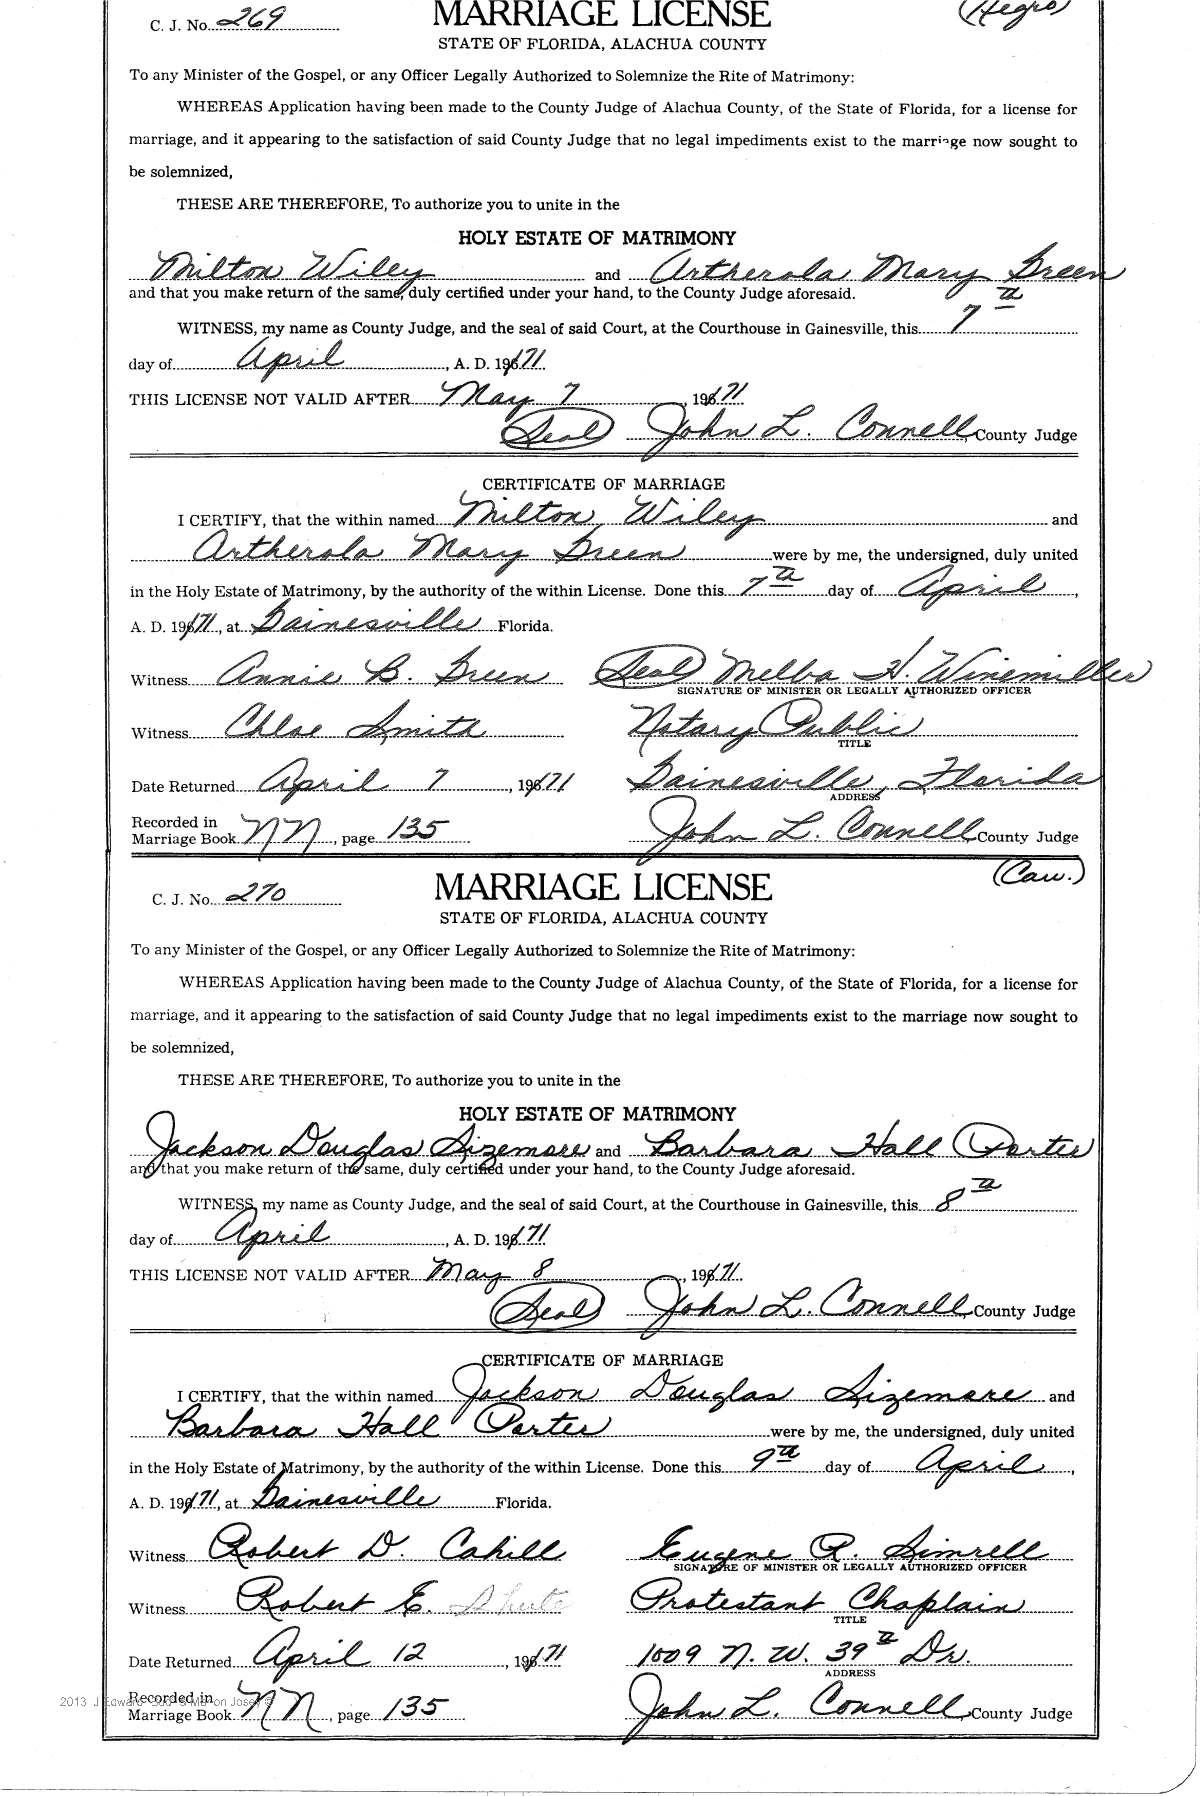 C. J. No. 269 MARRIAGE LICENSE (Negro)
STATE OF FLORIDA, ALACHUA COUNTY
To any Minister of the Gospel, or any Officer Legally Authorized to Solemnize the Rite of Matrimony:
WHEREAS Application having been made to the County Judge of Alachua County, of the State of Florida, for a license for
marriage, and it appearing to the satisfaction of said County Judge that no legal impediments exist to the marriage now sought to
be solemnized,
THESE ARE THEREFORE, To authorize you to unite in the
HOLY ESTATE OF MATRIMONY
Milton Wiley and Artherola Mary Green
and that you make return of the same, duly certified under your hand, to the County Judge aforesaid.
WITNESS, my name as County Judge, and the seal of said Court, at the Courthouse in Gainesville, this 7th
day of April, A. D. 1971
THIS LICENSE NOT VALID AFTER May 7, 1971
(Seal) John L. Connell County Judge
CERTIFICATE OF MARRIAGE
I CERTIFY, that the within named Milton Wiley and
Artherola Mary Green were by me, the undersigned, duly united
in the Holy Estate of Matrimony, by the authority of the within License. Done this 7th day of April,
A. D. 1971, at Gainesville Florida.
Witness Annie B. Green (Seal) Melba H. Winemiller
SIGNATURE OF MINISTER OR LEGALLY AUTHORIZED OFFICER
Witness Chloe Smith Notary Public
TITLE
Date Returned April 7, 1971 Gainesville, Florida
ADDRESS
Recorded in
Marriage Book NN, page 135 John L. Connell County Judge
(Cau.)
C. J. No. 270 MARRIAGE LICENSE
STATE OF FLORIDA, ALACHUA COUNTY
To any Minister of the Gospel, or any Officer Legally Authorized to Solemnize the Rite of Matrimony:
WHEREAS Application having been made to the County Judge of Alachua County, of the State of Florida, for a license for
marriage, and it appearing to the satisfaction of said County Judge that no legal impediments exist to the marriage now sought to
be solemnized,
THESE ARE THEREFORE, To authorize you to unite in the
HOLY ESTATE OF MATRIMONY
Jackson Douglas Sizemore and Barbara Hall Porter
and that you make return of the same, duly certified under your hand, to the County Judge aforesaid.
WITNESS, my name as County Judge, and the seal of said Court, at the Courthouse in Gainesville, this 8th
day of April, A. D. 1971
THIS LICENSE NOT VALID AFTER May 8, 1971.
(Seal) John L. Connell County Judge
CERTIFICATE OF MARRIAGE
I CERTIFY, that the within named Jackson Douglas Sizemore and
Barbara Hall Porter were by me, the undersigned, duly united
in the Holy Estate of Matrimony, by the authority of the within License. Done this 9th day of April,
A. D. 1971, at Gainesville Florida.
Witness Robert D. Cahill Eugene R. Simrell
SIGNATURE OF MINISTER OR LEGALLY AUTHORIZED OFFICER
Witness Robert E. Protestant Chaplain
TITLE
Date Returned April 12, 1971 1009 N. W. 39th Dr.
ADDRESS
2013 J Edward
Recorded in
Marriage Book NN, page 135 John L. Connell County Judge